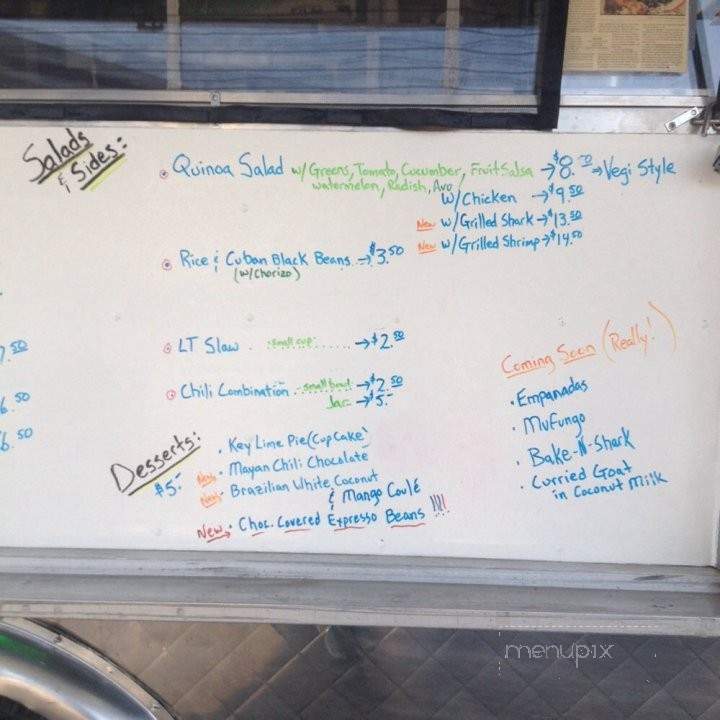 Salads
& Sides:
Quinoa Salad w/Greens, Tomato, Cucumber, Fruit Salsa → $8.50 ⇒ Vegi Style
watermelon, Radish, Avo
w/Chicken → $9.50
New w/Grilled Shark → $13.50
New w/Grilled Shrimp → $14.50
Rice & Cuban Black Beans → $3.50
(w/Chorizo)
LT Slaw . small cup ...... → $2.50
Chili Combination - small bowl → $2.50
Jar - → $5.-
7.50
6.50
6.50
Desserts:
$5.-
· Key Lime Pie (Cup Cake)
New · Mayan Chili Chocolate
New · Brazilian White Coconut
& Mango Coulé
New · Choc. Covered Expresso Beans !!!!
Coming Soon (Really!)
· Empanadas
· Mufungo
· Bake-N-Shark
· Curried Goat
in Coconut Milk
menupix